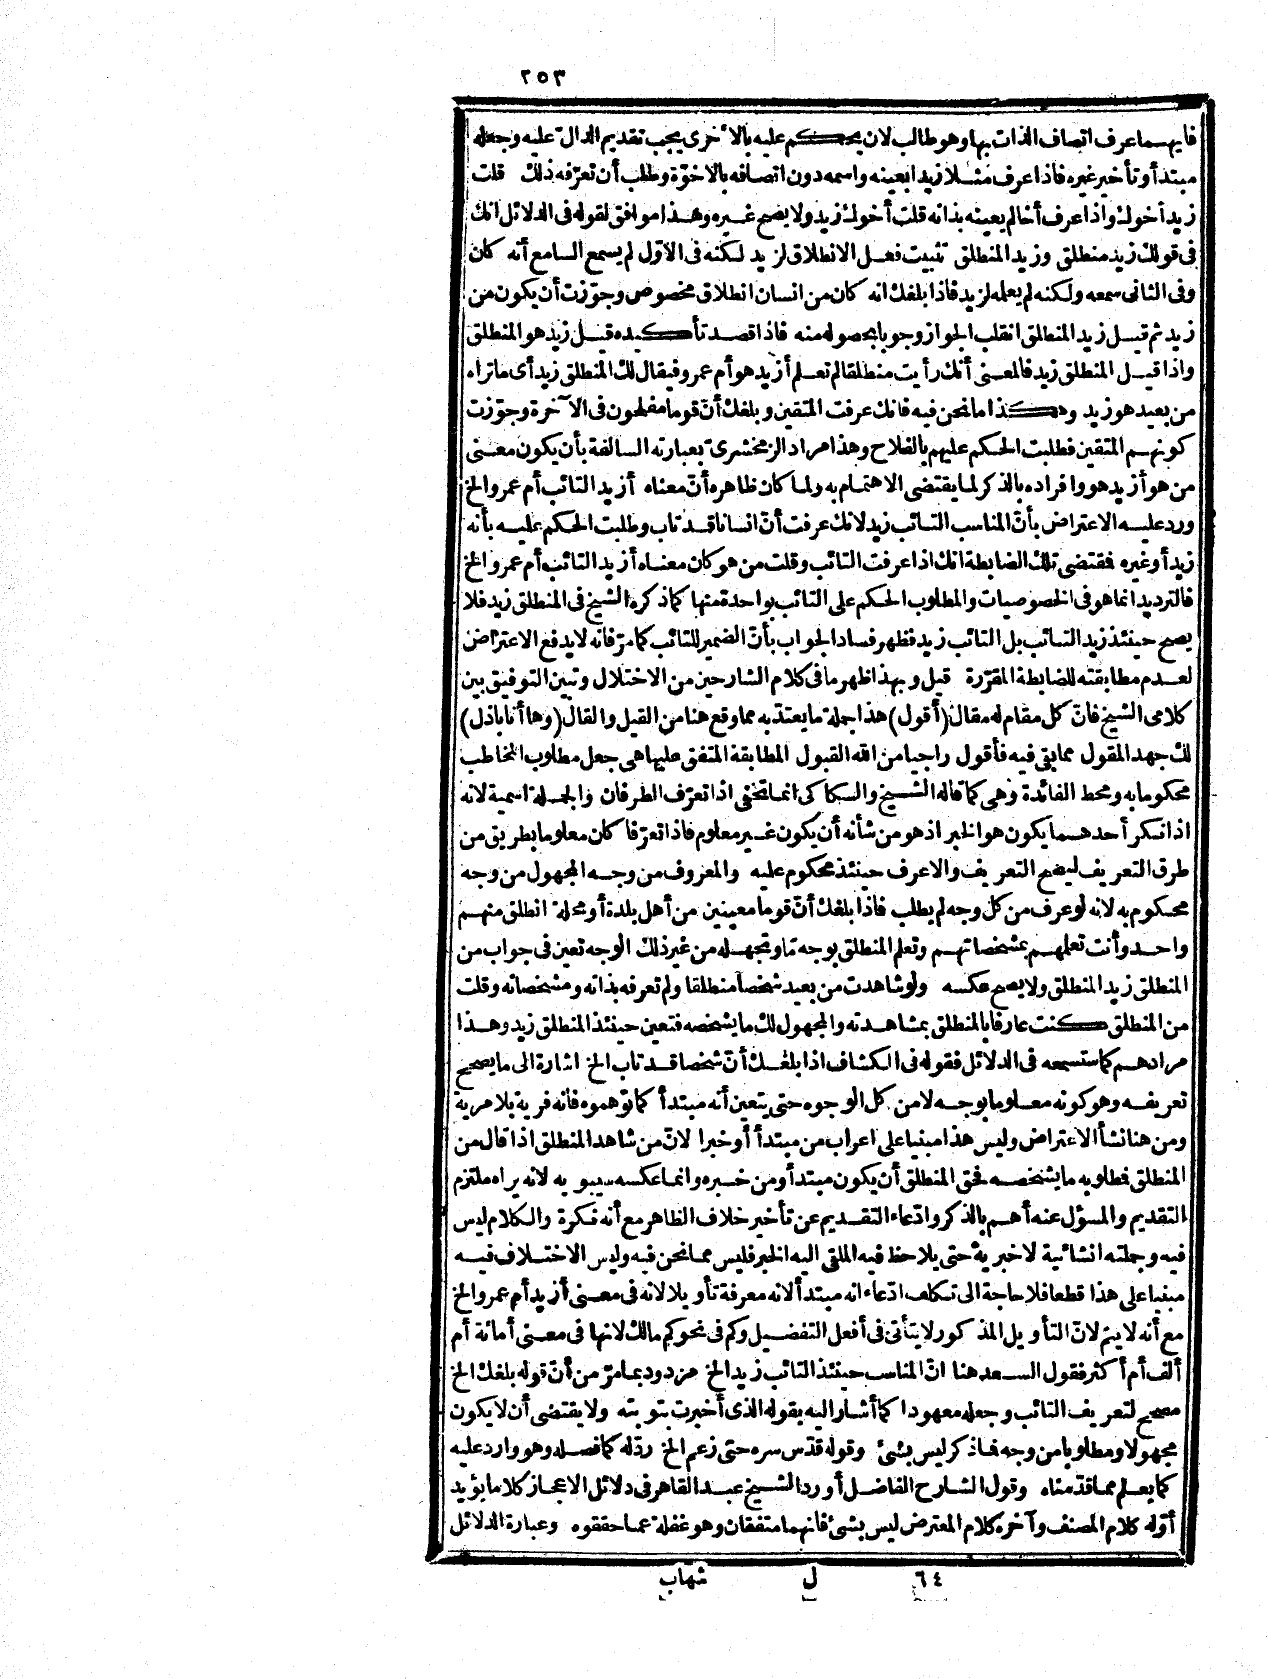 ٢٥٣
فأيهما عرف اتصاف الذات بها وهو طالب لان يحكم عليه بالأخرى يجب تقديم الدال عليه وجعله
مبتدأ وتأخير غيره فاذا عرف مثلا زيدا بعينه واسمه دون اتصافه بالاخوّة وطلب أن تعرّفه ذلك قلت
زيد أخوك واذا عرف أخا لم يعينه بذاته قلت أخوك زيد ولا يصح غيره وهذا موافق لقوله فى الدلائل انك
فى قولك زيد منطلق وزيد المنطلق تثبت فعل الانطلاق لزيد لكنه فى الاوّل لم يسمع السامع أنه كان
وفى الثانى سمعه ولكنه لم يعلمه لزيد فاذا بلغك انه كان من انسان انطلاق مخصوص وجوّزت أن يكون من
زيد ثم قيل زيد المنطلق انقلب الجواز وجوبا بحصوله منه فاذا قصد تأكيده قيل زيد هو المنطلق
واذا قيل المنطلق زيد فالمعنى أنك رأيت منطلقا لم تعلم أزيد هو أم عمرو فيقال لك المنطلق زيد أى ما تراه
من بعيد هو زيد وهكذا ما نحن فيه فانك عرفت المتقين وبلغك أنّ قوما مفلحون فى الآخرة وجوّزت
كونهم المتقين فطلبت الحكم عليهم بالفلاح وهذا مراد الزمخشرىّ بعبارته السالفة بأن يكون معنى
من هو أزيد هو وافراده بالذكر لما يقتضى الاهتمام به ولما كان ظاهره أنّ معناه أزيد التائب أم عمرو الخ
ورد عليه الاعتراض بأنّ المناسب التائب زيد لانك عرفت أنّ انسانا قد تاب وطلبت الحكم عليه بأنه
زيد أو غيره فمقتضى تلك الضابطة انك اذا عرفت التائب وقلت من هو كان معناه أزيد التائب أم عمرو الخ
فالترديد انما هو فى الخصوصيات والمطلوب الحكم على التائب بواحدة منها كما ذكره الشيخ فى المنطلق زيد فلا
يصح حينئذ زيد التائب بل التائب زيد فظهر فساد الجواب بأنّ الضمير للتائب كما مرّ فانه لا يدفع الاعتراض
لعدم مطابقته للضابطة المقرّرة قيل وبهذا ظهر ما فى كلام الشارحين من الاختلال وتبين التوفيق بين
كلامى الشيخ فانّ كل مقام له مقال (أقول) هذا جملة ما يعتدّ به مما وقع هنا من القيل والقال (وها أنا باذل)
لك جهد المقول مما بقى فيه فأقول راجيا من الله القبول المطابقة المتفق عليها هى جعل مطلوب المخاطب
محكوما به ومحط الفائدة وهى كما قاله الشيخ والسكاكى انما تخفى اذا تعرّف الطرفان والجملة اسمية لانه
اذا نكر أحدهما يكون هو الخبر اذ هو من شأنه أن يكون غير معلوم فاذا تعرّفا كان معلوما بطريق من
طرق التعريف ليصح التعريف والاعرف حينئذ محكوم عليه والمعروف من وجه المجهول من وجه
محكوم به لانه لو عرف من كل وجه لم يطلب فاذا بلغك أنّ قوما معينين من أهل بلدة أو محلة انطلق منهم
واحد وأنت تعلمهم بمشخصاتهم وتعلم المنطلق بوجه ما وتجهله من غير ذلك الوجه تعين فى جواب من
المنطلق زيد المنطلق ولا يصح عكسه ولو شاهدت من بعيد شخصا منطلقا ولم تعرفه بذاته ومشخصاته وقلت
من المنطلق كنت عارفا بالمنطلق بمشاهدته والمجهول لك ما يشخصه فتعين حينئذ المنطلق زيد وهذا
مرادهم كما ستسمعه فى الدلائل فقوله فى الكشاف اذا بلغك أنّ شخصا قد تاب الخ اشارة الى ما يصحح
تعريفه وهو كونه معلوما بوجه لا من كل الوجوه حتى يتعين أنه مبتدأ كما توّهموه فانه فرية بلا مرية
ومن هنا نشأ الاعتراض وليس هذا مبنيا على اعراب من مبتدأ أو خبرا لانّ من شاهد المنطلق اذا قال من
المنطلق فطلوبه ما يشخصه فحق المنطلق أن يكون مبتدأ ومن خبره وانما عكسه سيبويه لانه يراه ملتزم
التقديم والمسؤل عنه أهم بالذكر وادّعاء التقديم عن تأخير خلاف الظاهر مع أنه نكرة والكلام ليس
فيه وجملته انشائية لا خبرية حتى يلاحظ فيه الملقى اليه الخبر فليس مما نحن فيه وليس الاختلاف فيه
مبنيا على هذا قطعا فلا حاجة الى تكلف ادّعاء انه مبتدأ لانه معرفة تأويلا لانه فى معنى أزيد أم عمرو الخ
مع أنه لا يتم لانّ التأويل المذكور لا يتأتى فى أفعل التفضيل وكم فى نحو كم مالك لانها فى معنى أمائة أم
ألف أم أكثر فقول السعد هنا انّ المناسب حينئذ التائب زيد الخ مردود بما مرّ من أنّ قوله بلغك الخ
مصحح لتعريف التائب وجعله معهودا كما أشار اليه بقوله الذى أخبرت بتوبته ولا يقتضى أن لا يكون
مجهولا ومطلوبا من وجه فما ذكر ليس بشئ وقوله قدّس سره حتى زعم الخ ردّ له كما فصله وهو وارد عليه
كما يعلم مما قدّمناه وقول الشارح الفاضل أورد الشيخ عبد القاهر فى دلائل الاعجاز كلاما يؤيد
أوّله كلام المصنف وآخره كلام المعترض ليس بشئ فانهما متفقان وهو غفلة عما حققوه وعبارة الدلائل
٦٤ ل شهاب